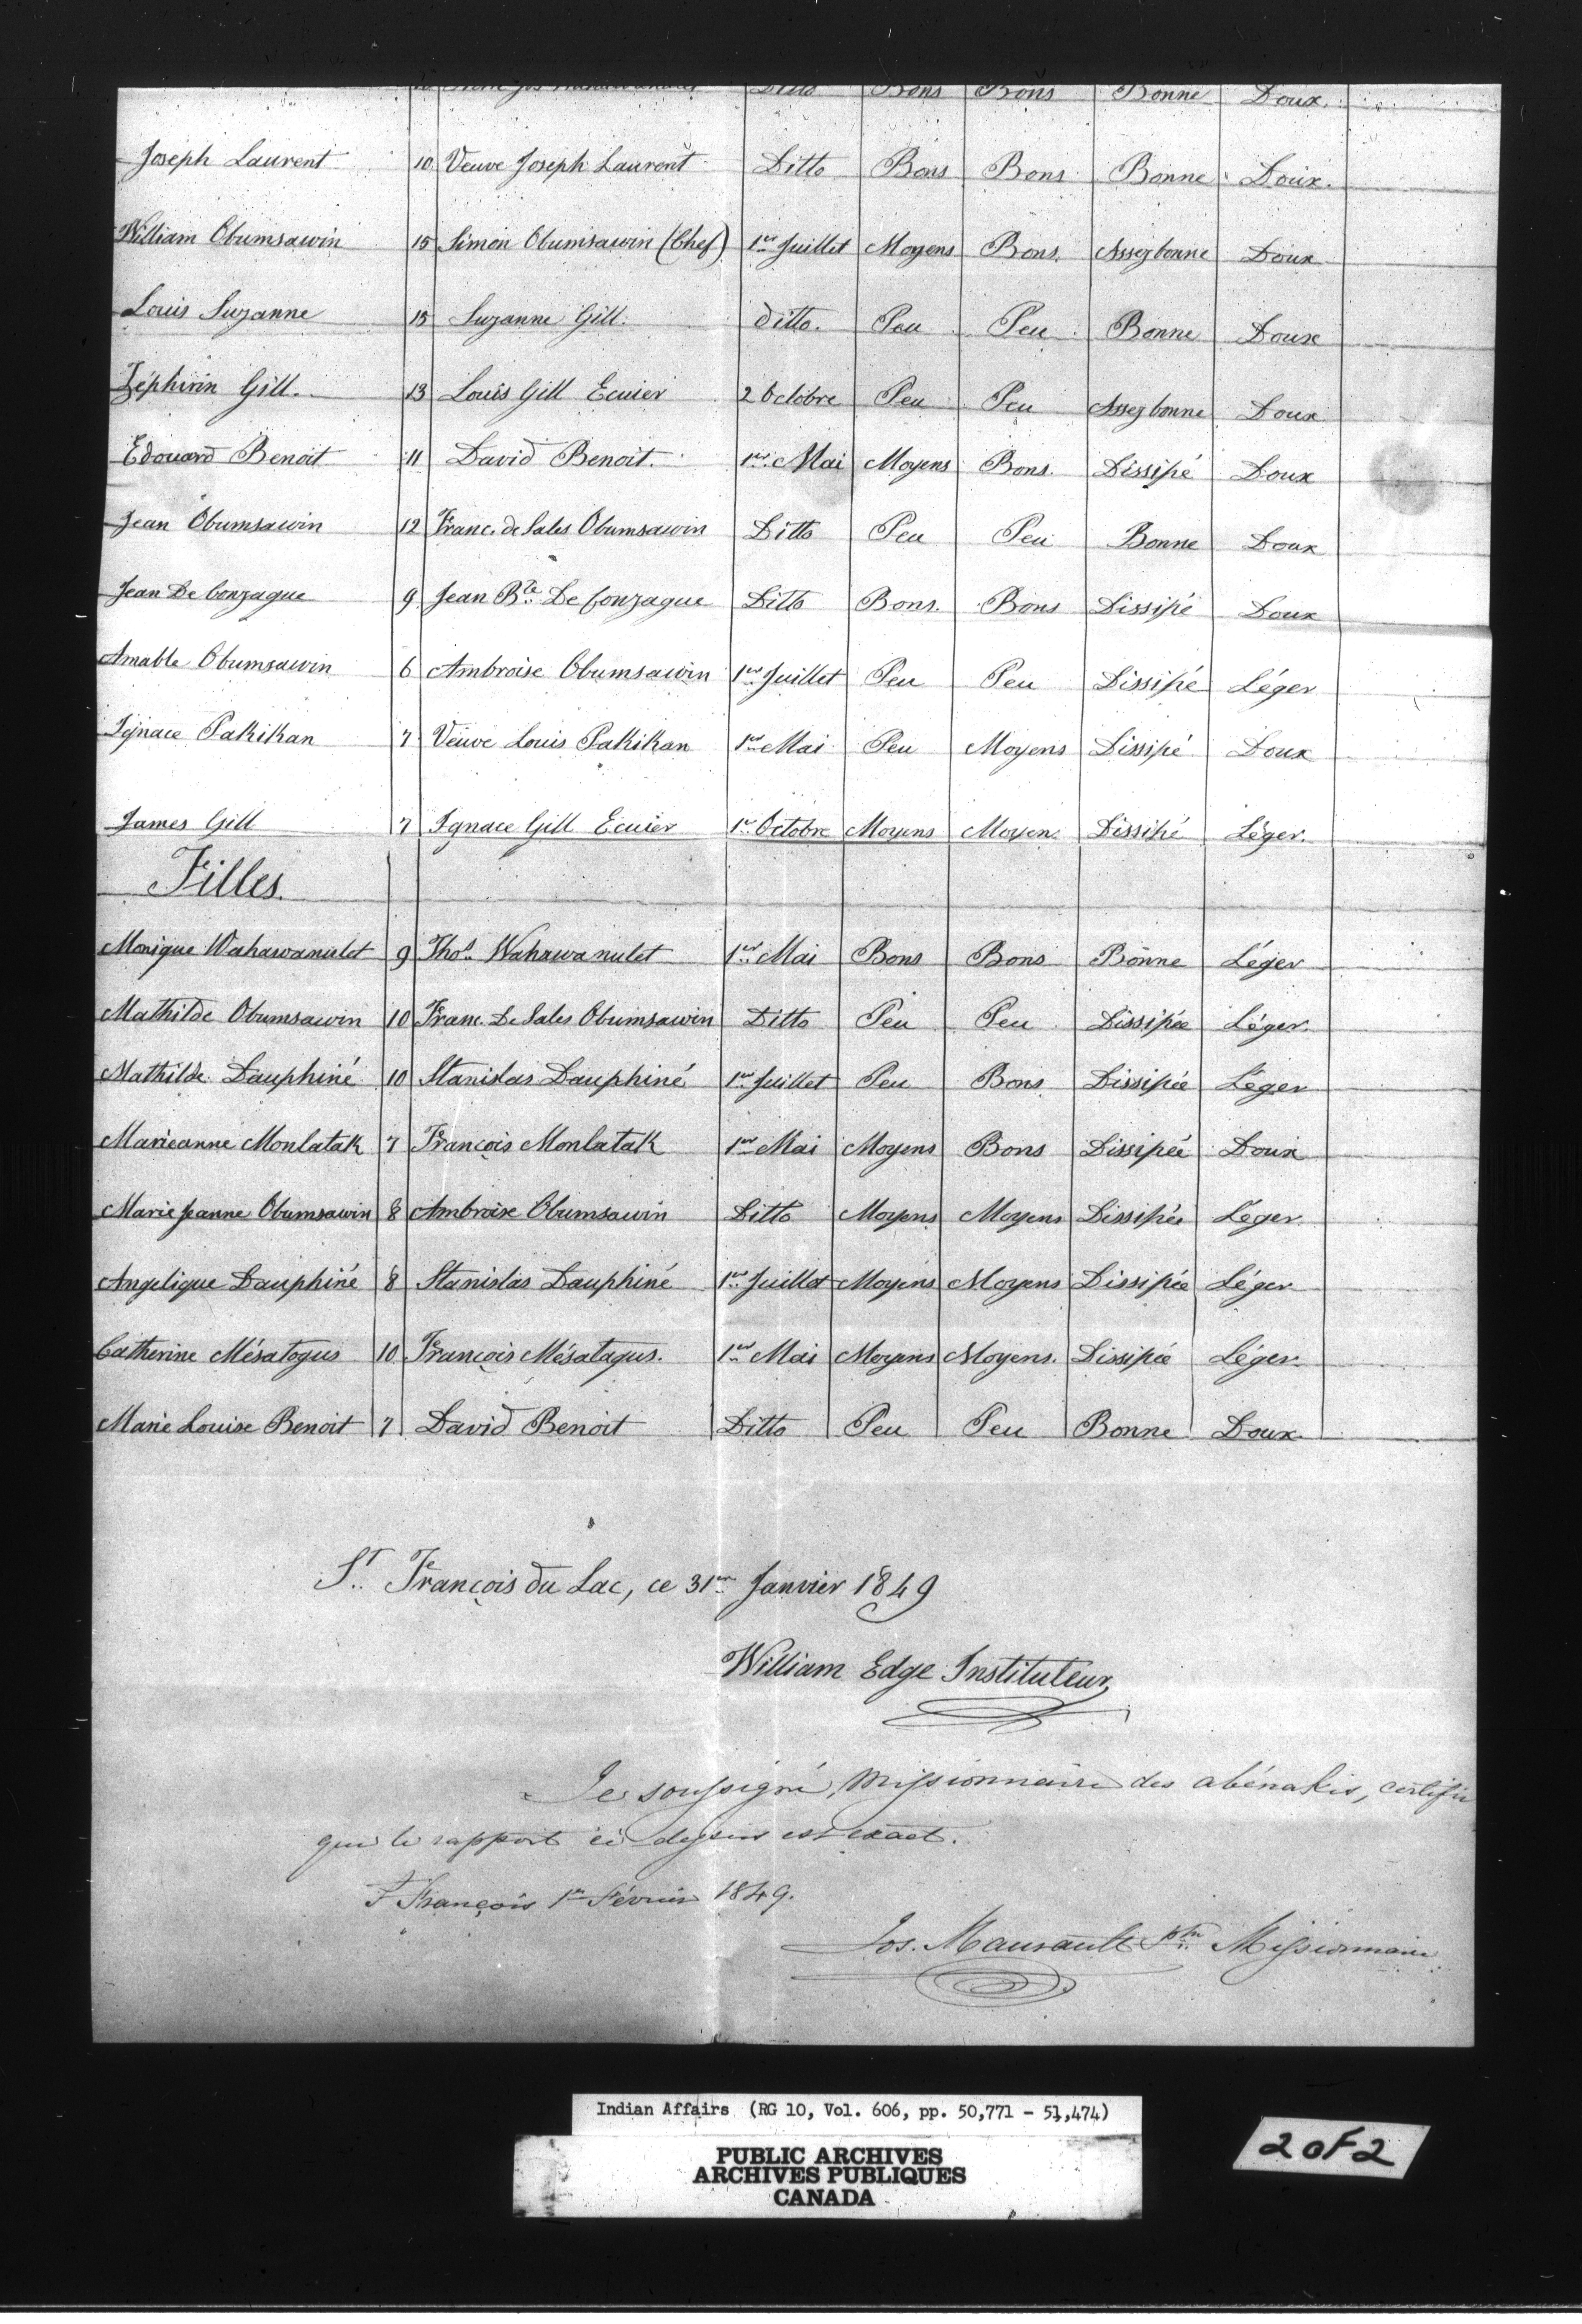 Ditto Bons Bons Bonne Doux.
Joseph Laurent 10 Veuve Joseph Laurent Ditto Bons Bons Bonne Doux.
William Obumsawin 15 Simon Obumsawin (Chef) 1er Juillet Moyens Bons. Assez bonne Doux
Louis Suzanne 15 Suzanne Gill. ditto. Peu Peu Bonne Doux
Zéphirin Gill. 13 Louis Gill Ecuier 2 Octobre Peu Peu Assez bonne Doux
Edouard Benoit 11 David Benoit. 1er Mai Moyens Bons. Dissipé Doux
Jean Obumsawin 12 Franc. de Sales Obumsawin Ditto Peu Peu Bonne Doux
Jean De Gonzague 9 Jean Bte De Gonzague Ditto Bons. Bons Dissipé Doux
Amable Obumsawin 6 Ambroise Obumsawin 1er Juillet Peu Peu Dissipé Léger
Ignace Pakikan 7 Veuve Louis Pakikan 1er Mai Peu Moyens Dissipé Doux
James Gill 7 Ignace Gill Ecuier 1er Octobre Moyens Moyen. Dissipé Léger.
Filles.
Monique Wahawanulet 9 Thos. Wahawanulet 1er Mai Bons Bons Bonne Léger
Mathilde Obumsawin 10 Franc. De Sales Obumsawin Ditto Peu Peu Dissipée Léger.
Mathilde Dauphiné 10 Stanislas Dauphiné 1er Juillet Peu Bons Dissipée Léger
Marieanne Monlatak 7 François Monlatak 1er Mai Moyens Bons Dissipée Doux
Marie Jeanne Obumsawin 8 Ambroise Obumsawin Ditto Moyens Moyens Dissipée Léger.
Angelique Dauphiné 8 Stanislas Dauphiné 1er Juillet Moyens Moyens Dissipée Léger
Catherine Mésatogus 10 François Mésatagus. 1er Mai Moyens Moyens. Dissipée Léger
Marie Louise Benoit 7 David Benoit Ditto Peu Peu Bonne Doux
St. François du Lac, ce 31er Janvier 1849
William Edge Instituteur,
Je soussigné, Missionnaire des abénakis, certifie
que le rapport ci dessus est exact.
St François 1er Février 1849.
Jos. Maurault Ptre Missionnaire
Indian Affairs (RG 10, Vol. 606, pp. 50,771 - 51,474)
PUBLIC ARCHIVES
ARCHIVES PUBLIQUES
CANADA
2 OF 2